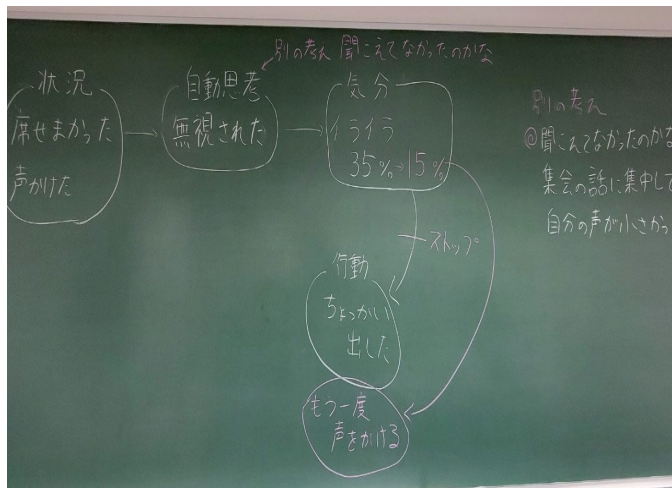 別の考え 聞こえてなかったのかな
状況
席せまかった
声かけた
自動思考
無視された
気分
イライラ
35%→15%
ストップ
行動
ちょっかい
出した
もう一度
声をかける
別の考え
◎聞こえてなかったのかな
集会の話に集中して
自分の声が小さかっ